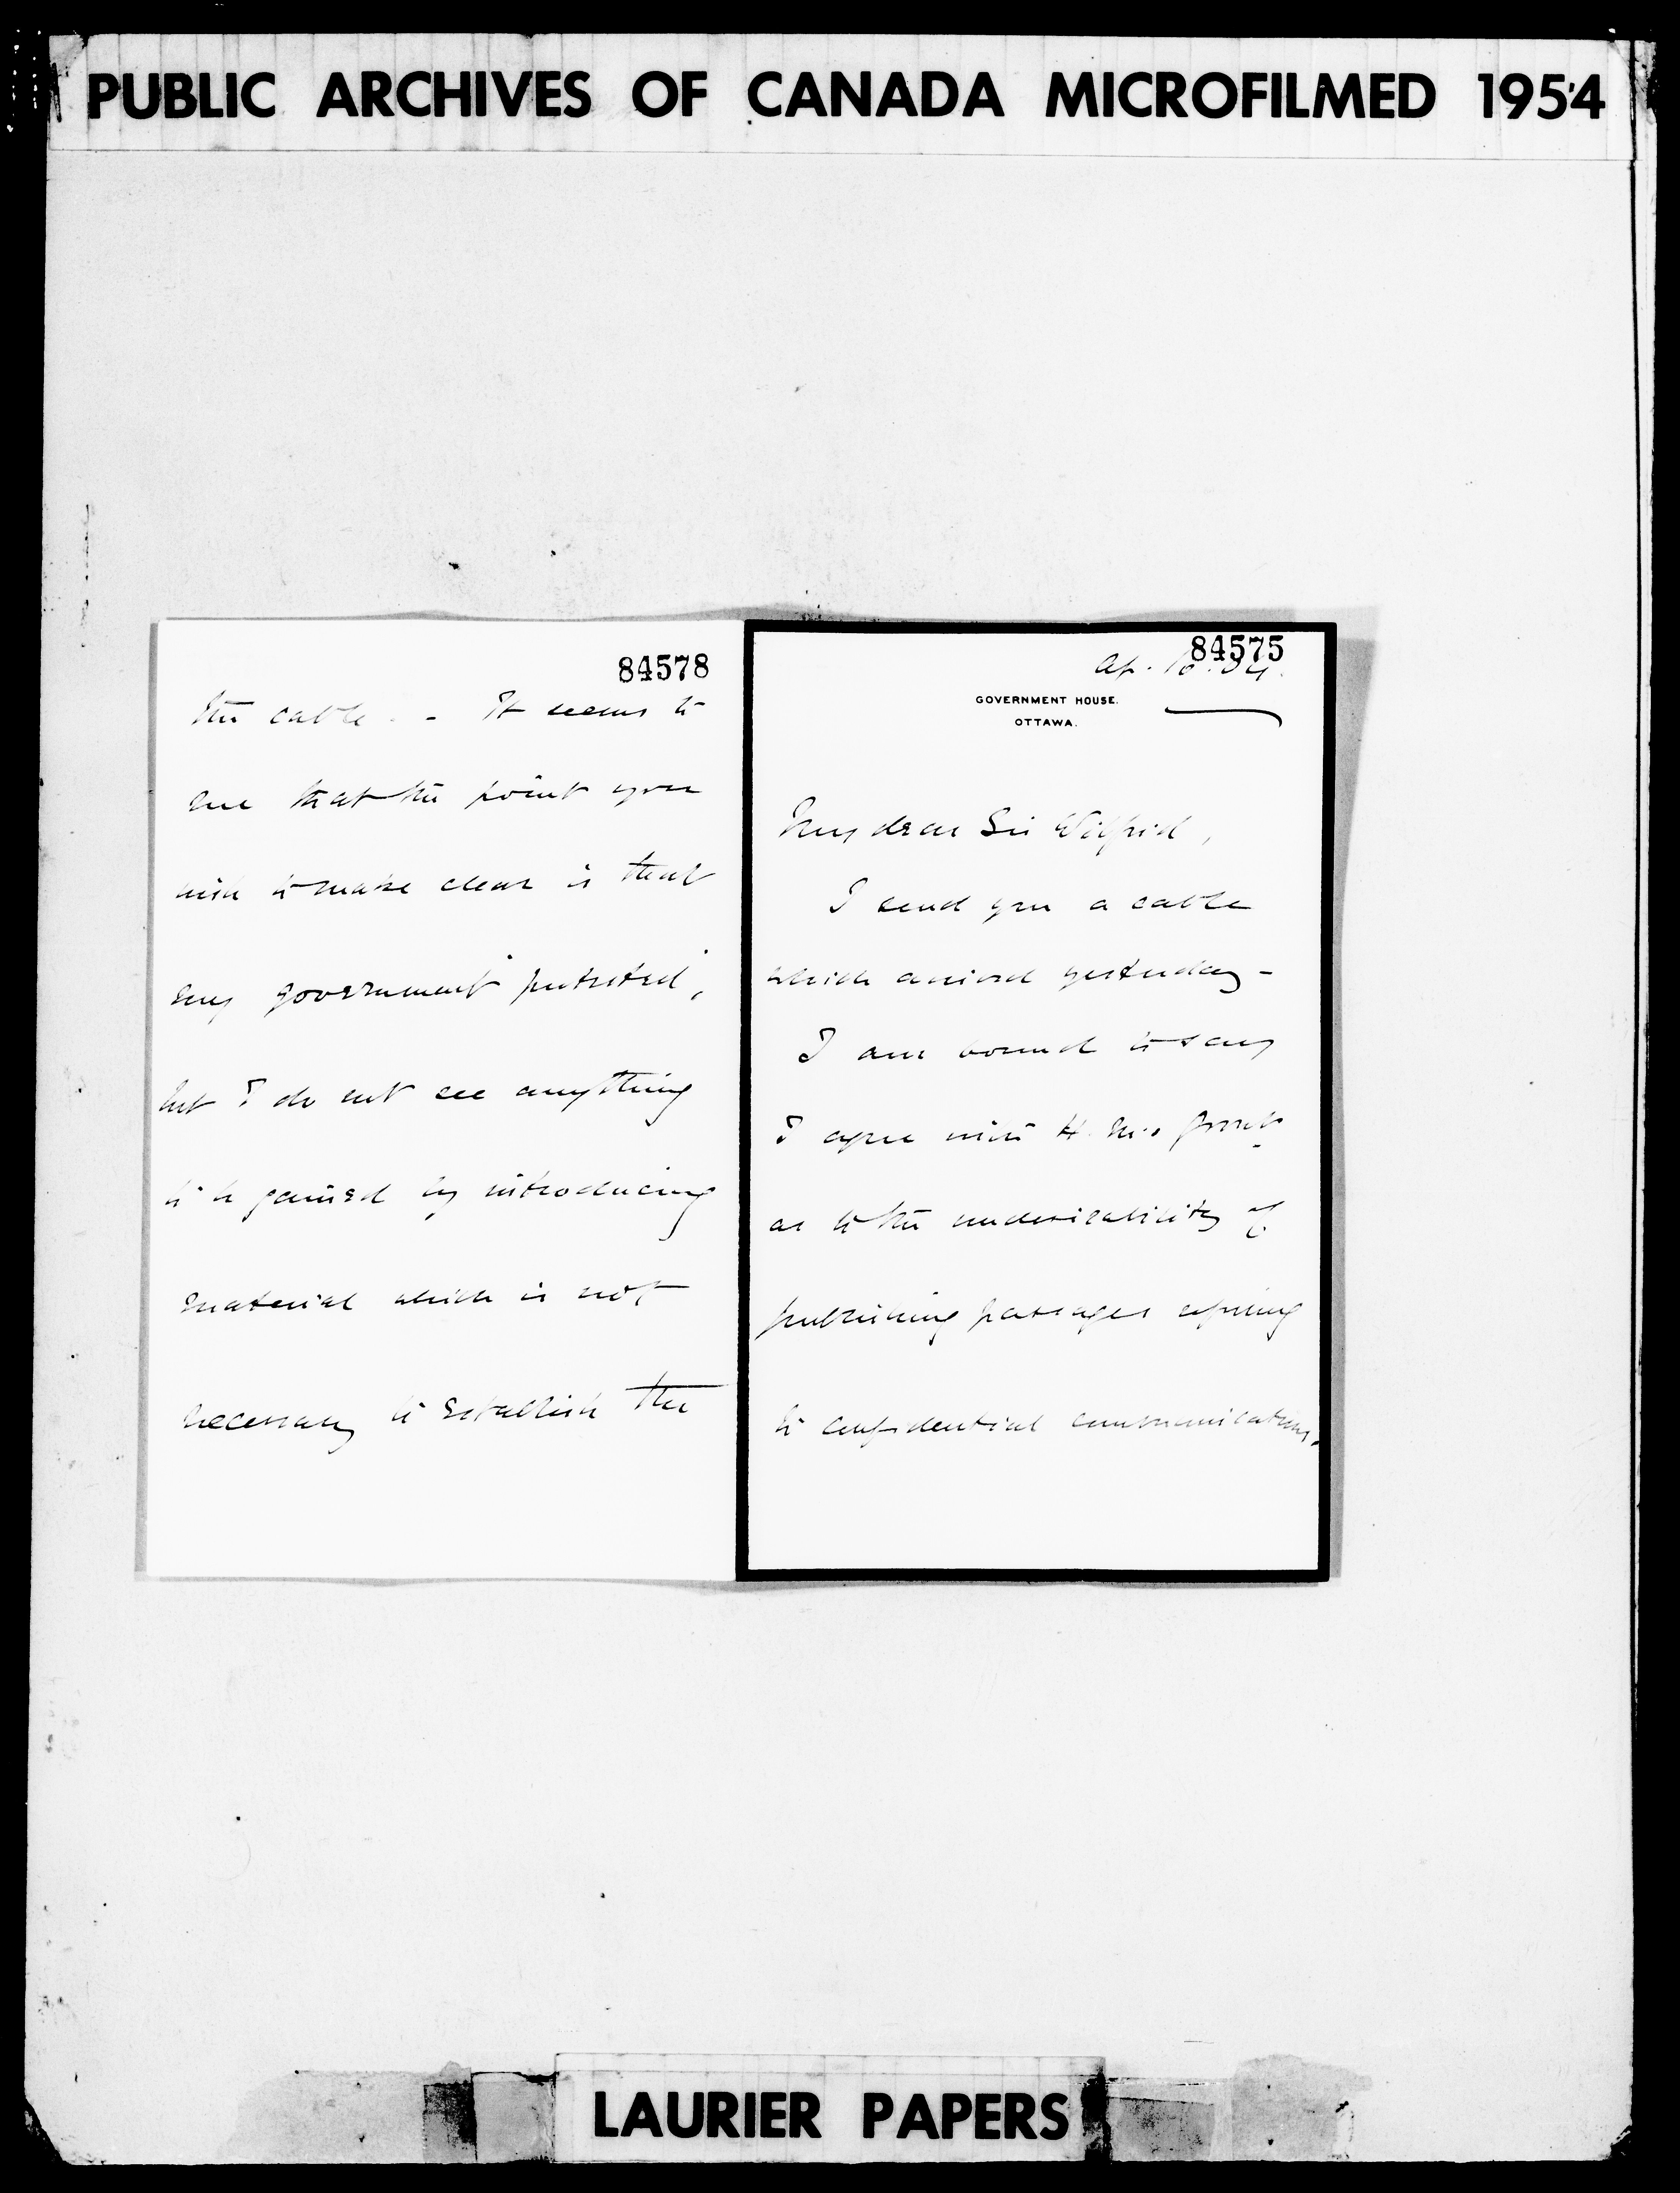 PUBLIC ARCHIVES OF CANADA MICROFILMED 1954
84578
the cable - - It seems to
me that the point you
wish to make clear is that
my government protested,
but I do not see anything
to be gained by introducing
material which is not
necessary to establish the
84575
Ap. 16. 04.
GOVERNMENT HOUSE.
OTTAWA.
My dear Sir Wilfrid,
I send you a cable
which arrived yesterday -
I am bound to say
I agree with H. M.'s Govt
as to the undesirability of
publishing passages referring
to confidential communications.
LAURIER PAPERS